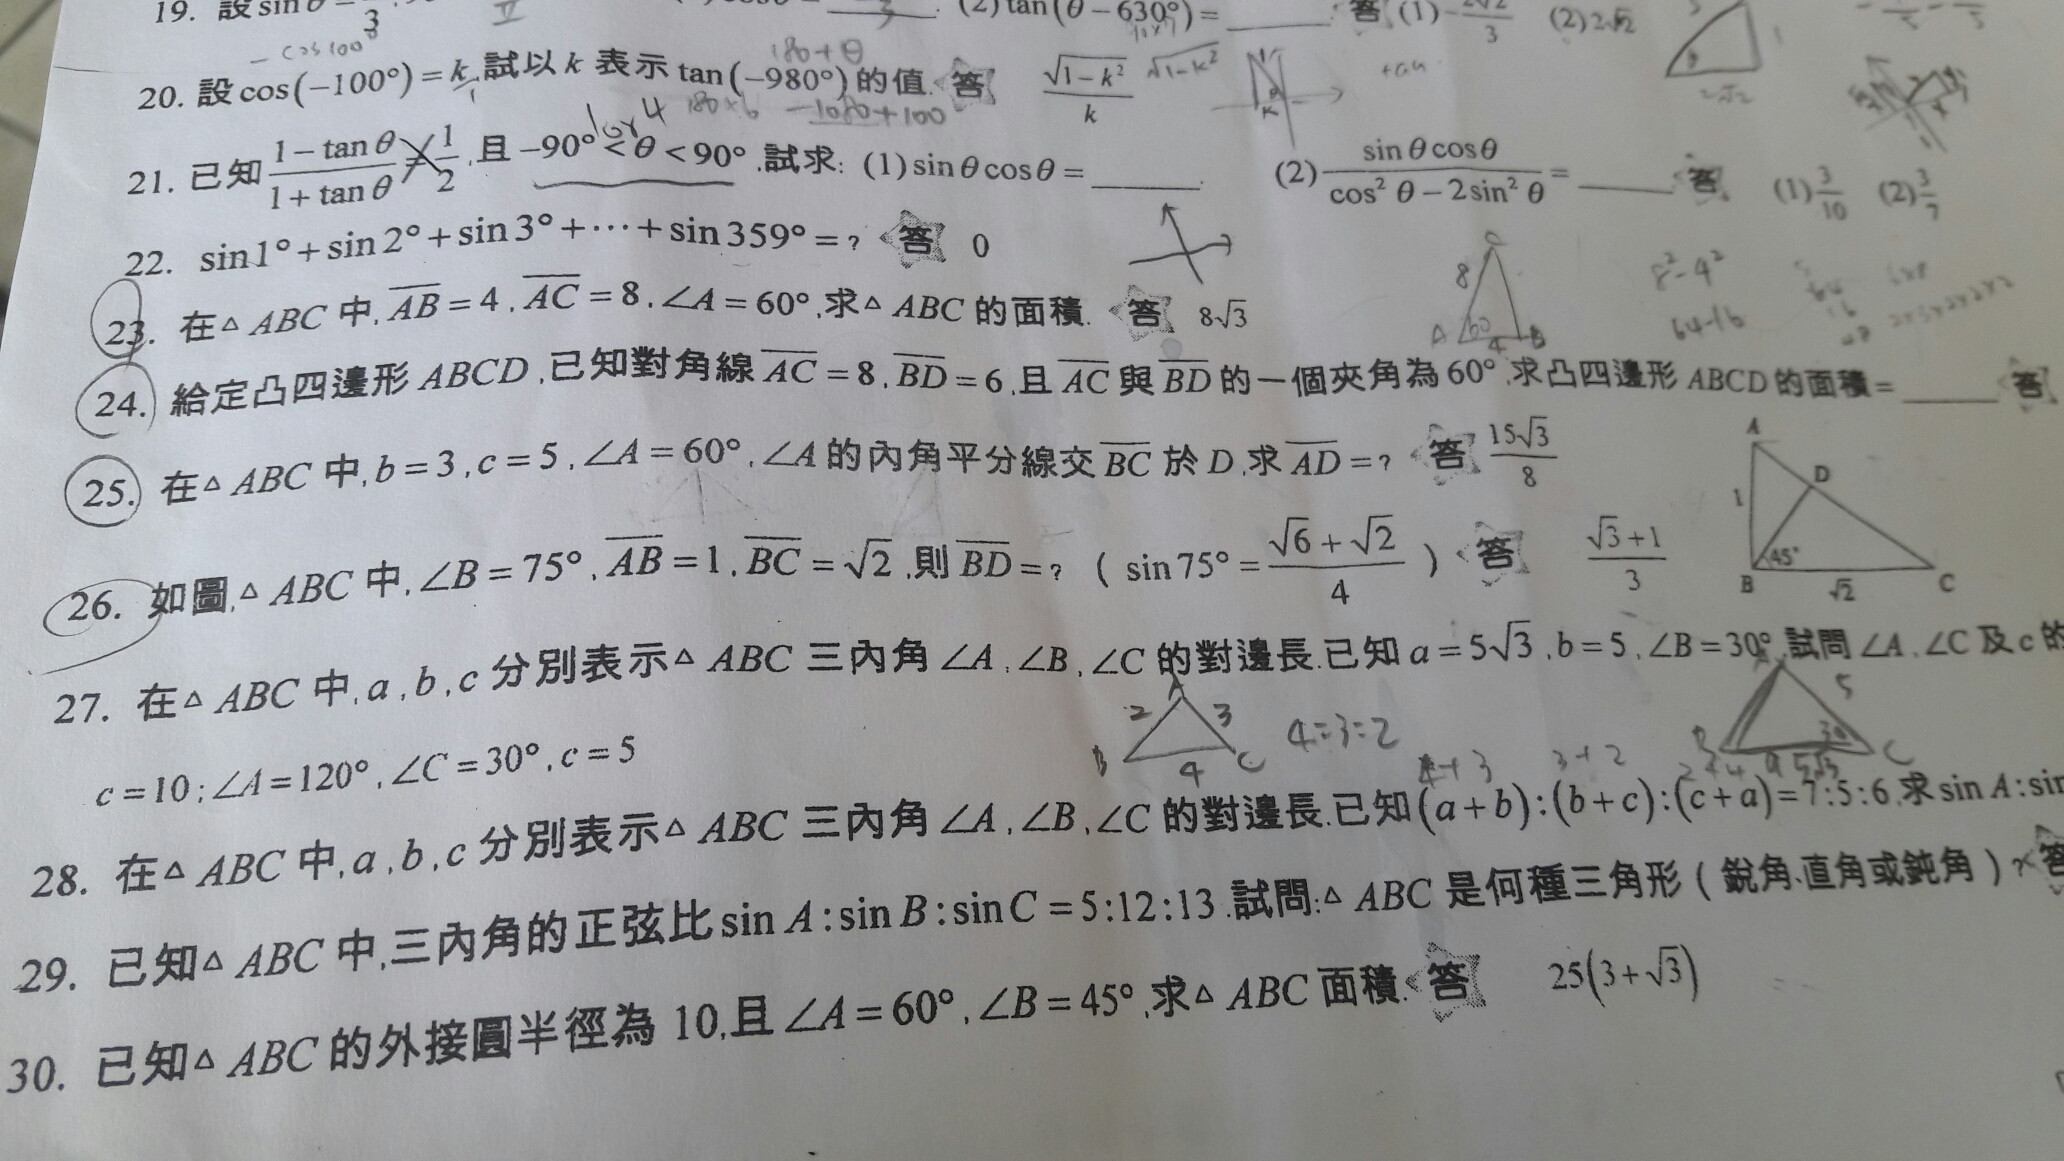 19. 設 sin θ = 3 (2) tan(θ − 630°) = ______. 答 (1) −2√2/3 (2) 2√2
−cos100° 180+θ
20. 設 cos(−100°) = k, 試以 k 表示 tan(−980°) 的值. 答 √(1−k²)/k √1−k²
1 or 4 180×6 −1080+100
21. 已知 (1−tan θ)/(1+tan θ) = 1/2, 且 −90° < θ < 90°, 試求: (1) sin θ cos θ = ______. (2) (sin θ cos θ)/(cos² θ − 2 sin² θ) = ______. 答 (1) 3/10 (2) 3/7
22. sin1° + sin2° + sin3° + ⋯ + sin359° = ? 答 0
23. 在△ABC 中, AB = 4, AC = 8, ∠A = 60°, 求△ABC 的面積. 答 8√3
C 8 A 60 4 B
8²−4²
64−16
24. 給定凸四邊形 ABCD, 已知對角線 AC = 8, BD = 6, 且 AC 與 BD 的一個夾角為 60°, 求凸四邊形 ABCD 的面積 = ______ 答
25. 在△ABC 中, b = 3, c = 5, ∠A = 60°, ∠A 的內角平分線交 BC 於 D, 求 AD = ? 答 15√3/8
A D 1 45° B √2 C
26. 如圖, △ABC 中, ∠B = 75°, AB = 1, BC = √2, 則 BD = ? ( sin75° = (√6+√2)/4 ) 答 (√3+1)/3
27. 在△ABC 中, a, b, c 分別表示△ABC 三內角 ∠A, ∠B, ∠C 的對邊長. 已知 a = 5√3, b = 5, ∠B = 30°, 試問 ∠A, ∠C 及 c 的
A 2 3 B 4 C 4:3:2
A 5 B 30 C a 5√3
c = 10; ∠A = 120°, ∠C = 30°, c = 5
4+3 3+2 2+4
28. 在△ABC 中, a, b, c 分別表示△ABC 三內角 ∠A, ∠B, ∠C 的對邊長. 已知 (a+b):(b+c):(c+a) = 7:5:6, 求 sin A : sin
29. 已知△ABC 中, 三內角的正弦比 sin A : sin B : sin C = 5:12:13. 試問: △ABC 是何種三角形 ( 銳角、直角或鈍角 ) ? 答
30. 已知△ABC 的外接圓半徑為 10, 且 ∠A = 60°, ∠B = 45°, 求△ABC 面積. 答 25(3+√3)